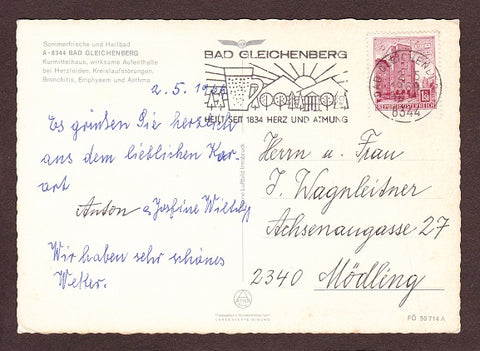 Sommerfrische und Heilbad
A - 8344 BAD GLEICHENBERG
Kurmittelhaus, wirksame Aufenthalte
bei Herzleiden, Kreislaufstörungen,
Bronchitis, Emphysem und Asthma
BAD GLEICHENBERG
HEILT SEIT 1834 HERZ UND ATMUNG
8344
REPUBLIK ÖSTERREICH
2. 5.
Es grüßen Sie herzlich
aus dem lieblichen Kur-
ort
Anton u Josefine
Wir haben sehr schönes
Wetter.
Herrn u. Frau
J. Wagnleitner
Achsenaugasse 27
2340 Mödling
FÖ 50 714 A